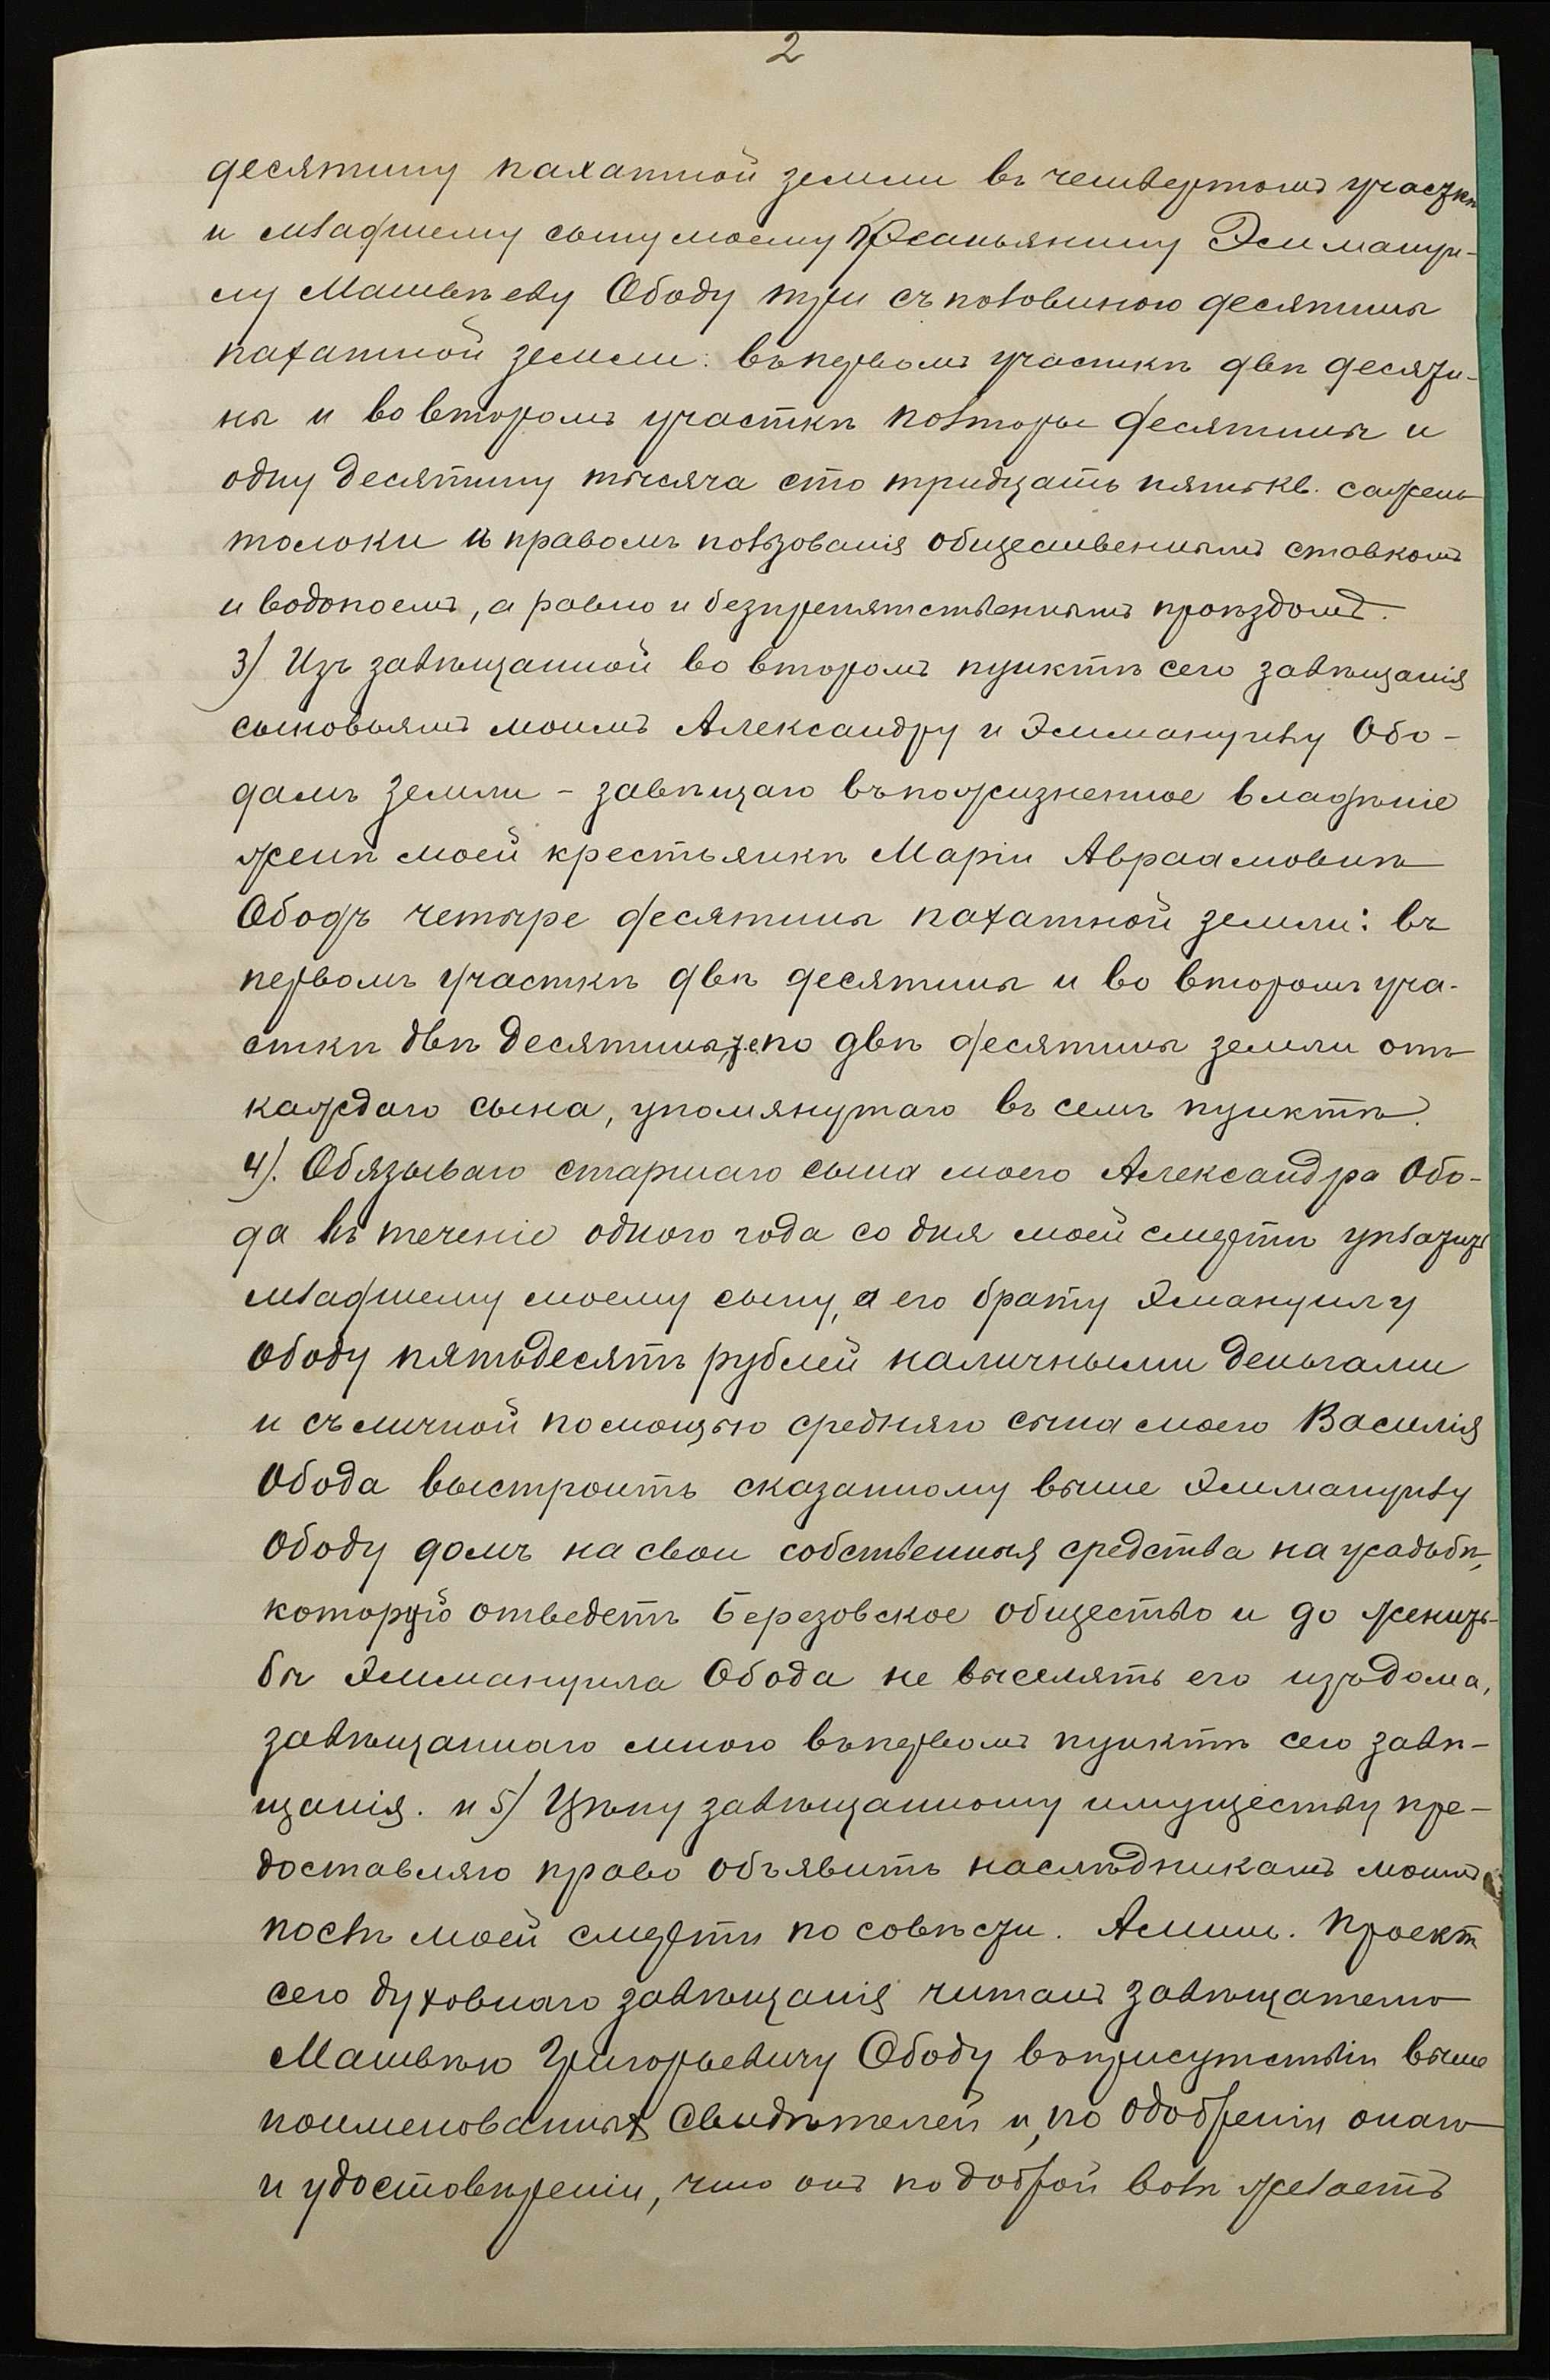 2
десятину пахатной земли въ четвертомъ участкѣ
и младшему сыну моему Эммануи-
лу Матвѣеву Ободу три съ половиною десятины
пахатной земли: въ первомъ участкѣ двѣ десяти-
ны и во второмъ участкѣ полторы десятины и
одну десятину тысяча сто тридцать пять кв. сажень
толоки и правомъ пользованія общественнымъ ставкомъ
и водопоемъ, а равно и безпрепятственнымъ проѣздомъ.
3) Изъ завѣщанной во второмъ пунктѣ сего завѣщанія
сыновьямъ моимъ Александру и Эммануилу Обо-
дамъ земли - завѣщаю въ пожизненное владѣніе
женѣ моей крестьянкѣ Маріи Авраамовнѣ
Ободъ четыре десятины пахатной земли: въ
первомъ участкѣ двѣ десятины и во второмъ уча-
сткѣ двѣ десятины, т.е. по двѣ десятины земли отъ
каждаго сына, упомянутаго въ семъ пунктѣ.
4). Обязываю старшаго сына моего Александра Обо-
да въ теченіе одного года со дня моей смерти уплатить
младшему моему сыну, а его брату Эмануилу
Ободу пятьдесятъ рублей наличными деньгами
и съ личной помощью средняго сына моего Василія
Обода выстроить сказанному выше Эммануилу
Ободу домъ на свои собственныя средства на усадьбѣ,
которую отведетъ Березовское общество и до женить-
бы Эммануила Обода не выселять его изъ дома,
завѣщаннаго мною въ первомъ пунктѣ сего завѣ-
щанія. и 5) Цѣну завѣщанному имуществу пре-
доставляю право объявить наслѣдникамъ моимъ
послѣ моей смерти по совѣсти. Аминь. Проектъ
сего духовнаго завѣщанія читанъ завѣщателю
Матвѣю Григорьевичу Ободу въ присутствіи выше
поименованныхъ свидѣтелей и, по одобреніи онаго
и удостовѣреніи, что онъ по доброй волѣ желаетъ